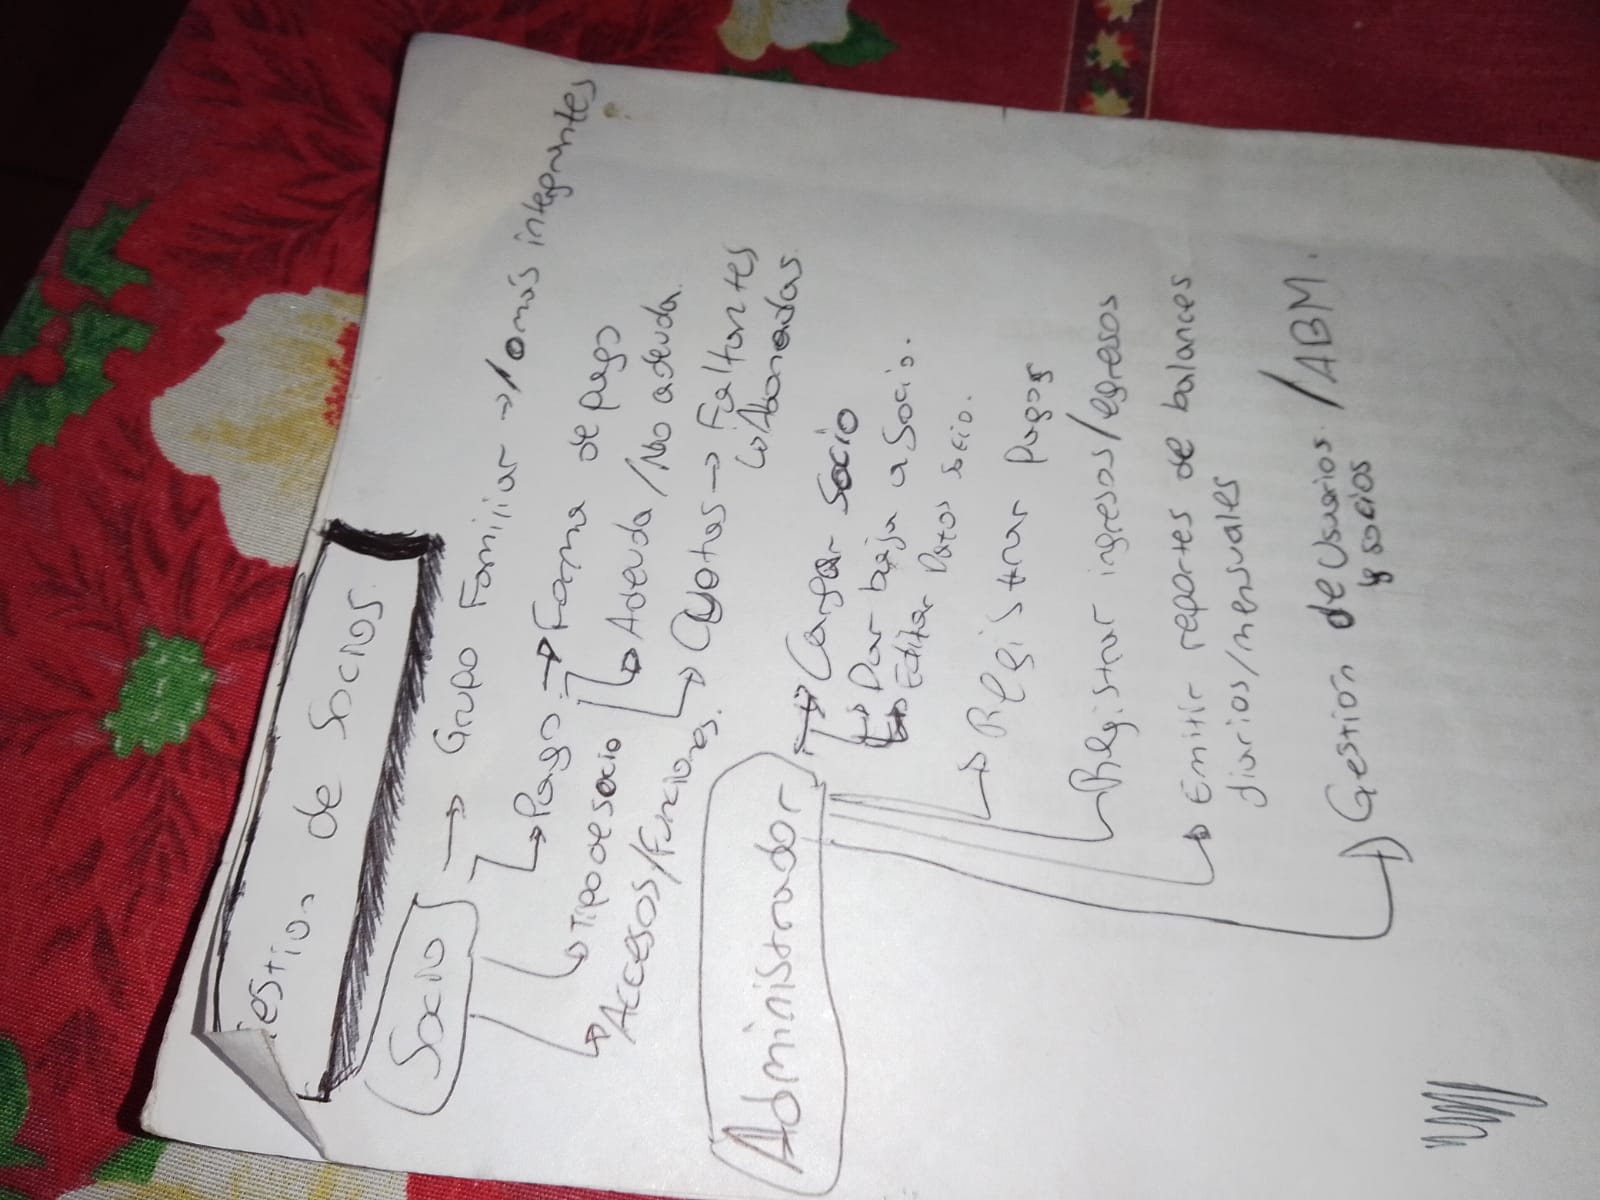 Gestion de Socios.
Socio → Grupo Familiar → 1 o más integrantes
→ Pago → Forma de pago
→ Tipo de socio
→ Adeuda / No adeuda.
→ Accesos/Funciones.
→ Cuotas → Faltantes
↳ Abonadas.
Administrador → Cargar Socio
→ Dar baja a Socio.
→ Editar Datos socio.
→ Registrar Pagos
Registrar ingresos/egresos
→ Emitir reportes de balances
diarios/mensuales
→ Gestión de Usuarios / ABM.
y socios